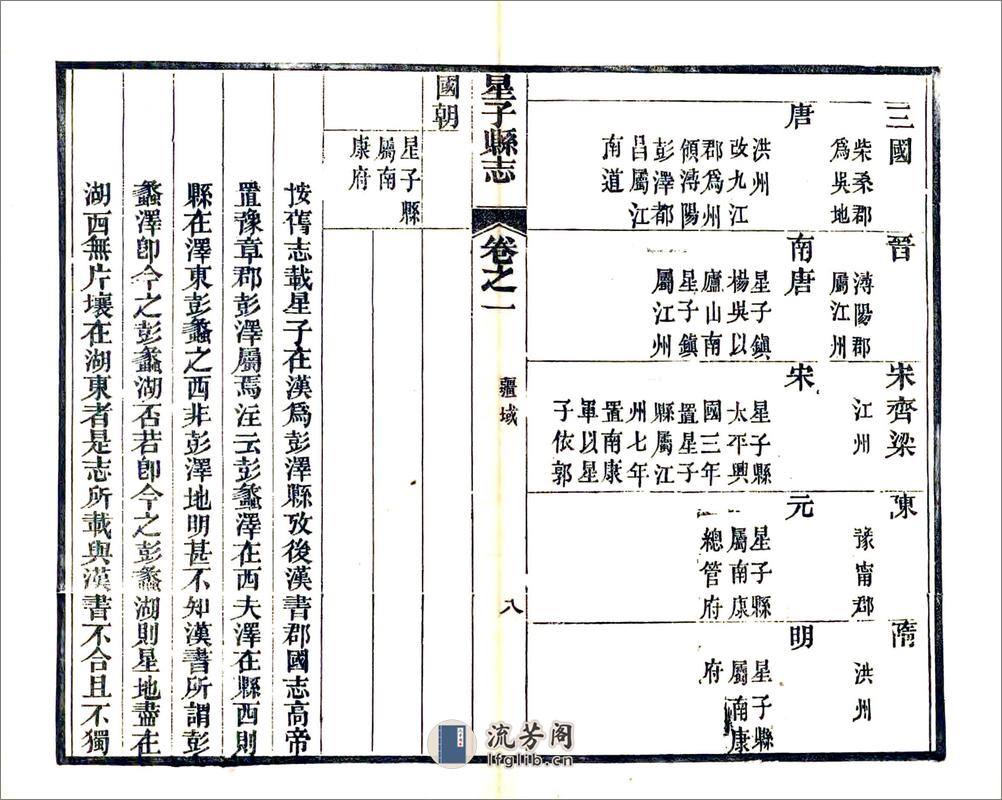 三國
柴桑郡
為吳地
晉
潯陽郡
屬江州
宋齊梁
江州
陳
豫甯郡
隋
洪州
唐
洪州
改九江
郡為州
領潯陽
彭澤都
昌屬江
南道
南唐
星子鎮
楊吳以
廬山南
星子鎮
屬江州
宋
星子縣
太平興
國三年
置星子
縣屬江
州七年
置南康
軍以星
子依郭
元
星子縣
屬南康
總管府
明
星子縣
屬南康
府
星子縣志
卷之一
疆域
八
國朝
星子縣
屬南
康府
按舊志載星子在漢為彭澤縣攷後漢書郡國志高帝
置豫章郡彭澤屬焉注云彭蠡澤在西夫澤在縣西則
縣在澤東彭蠡之西非彭澤地明甚不知漢書所謂彭
蠡澤卽今之彭蠡湖否若卽今之彭蠡湖則星地盡在
湖西無片壤在湖東者是志所載與漢書不合且不獨
流芳阁
lfglib.cn